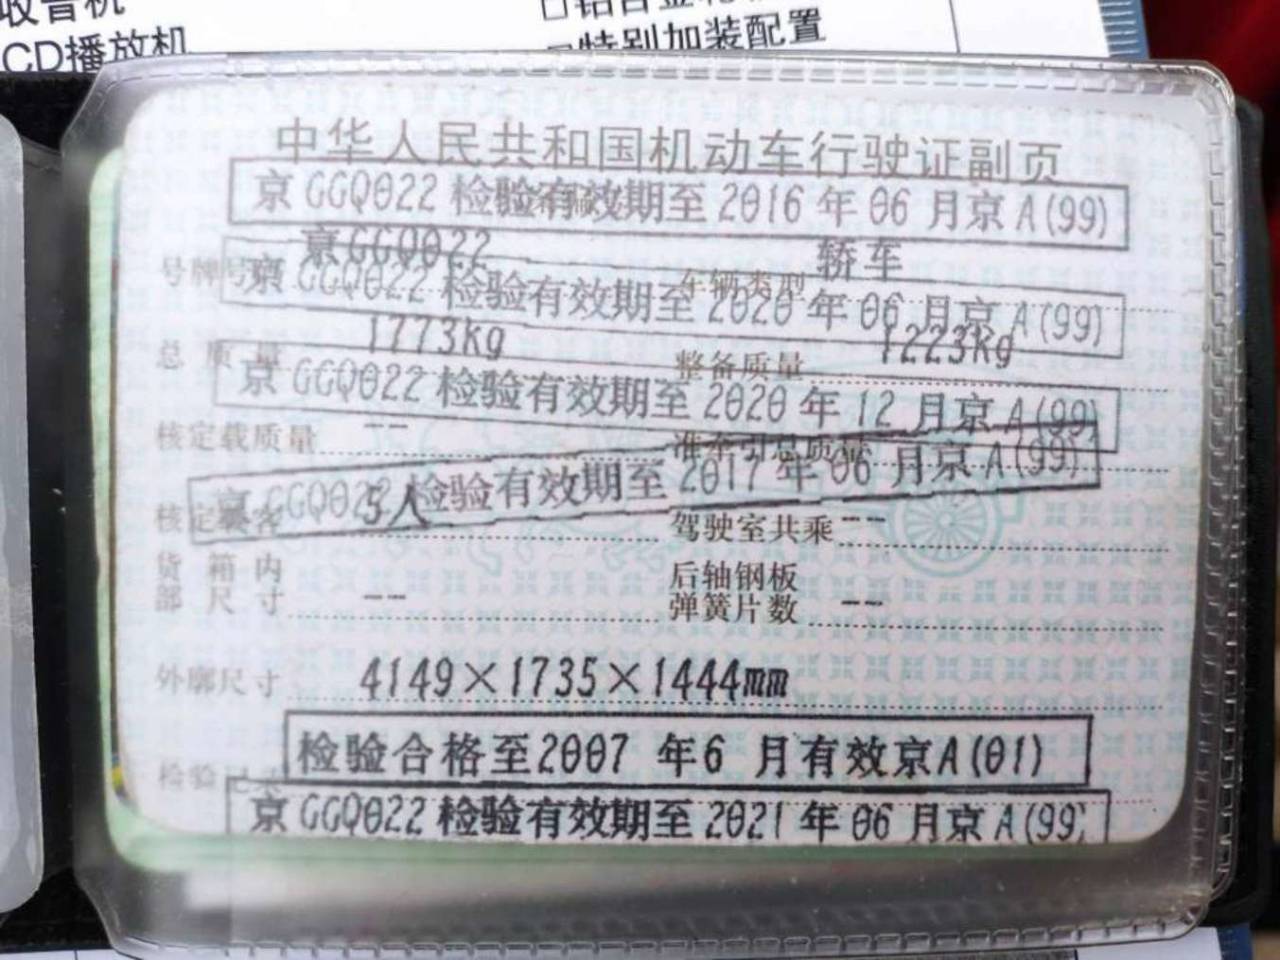 收音机
CD播放机
特别加装配置
中华人民共和国机动车行驶证副页
京GGQ022 检验有效期至2016年06月京A(99)
京GGQ022 轿车
号牌号 车辆类型
京GGQ022 检验有效期至2020年06月京A(99)
1773kg 1223kg
总质量 整备质量
京GGQ022 检验有效期至2020年12月京A(99)
核定载质量 -- 准牵引总质量
京GGQ022 检验有效期至2017年06月京A(99)
核定载客 5人 驾驶室共乘 --
货箱内 后轴钢板
部尺寸 -- 弹簧片数 --
外廓尺寸 4149×1735×1444mm
检验合格至2007年6月有效京A(01)
检验记录
京GGQ022 检验有效期至2021年06月京A(99)